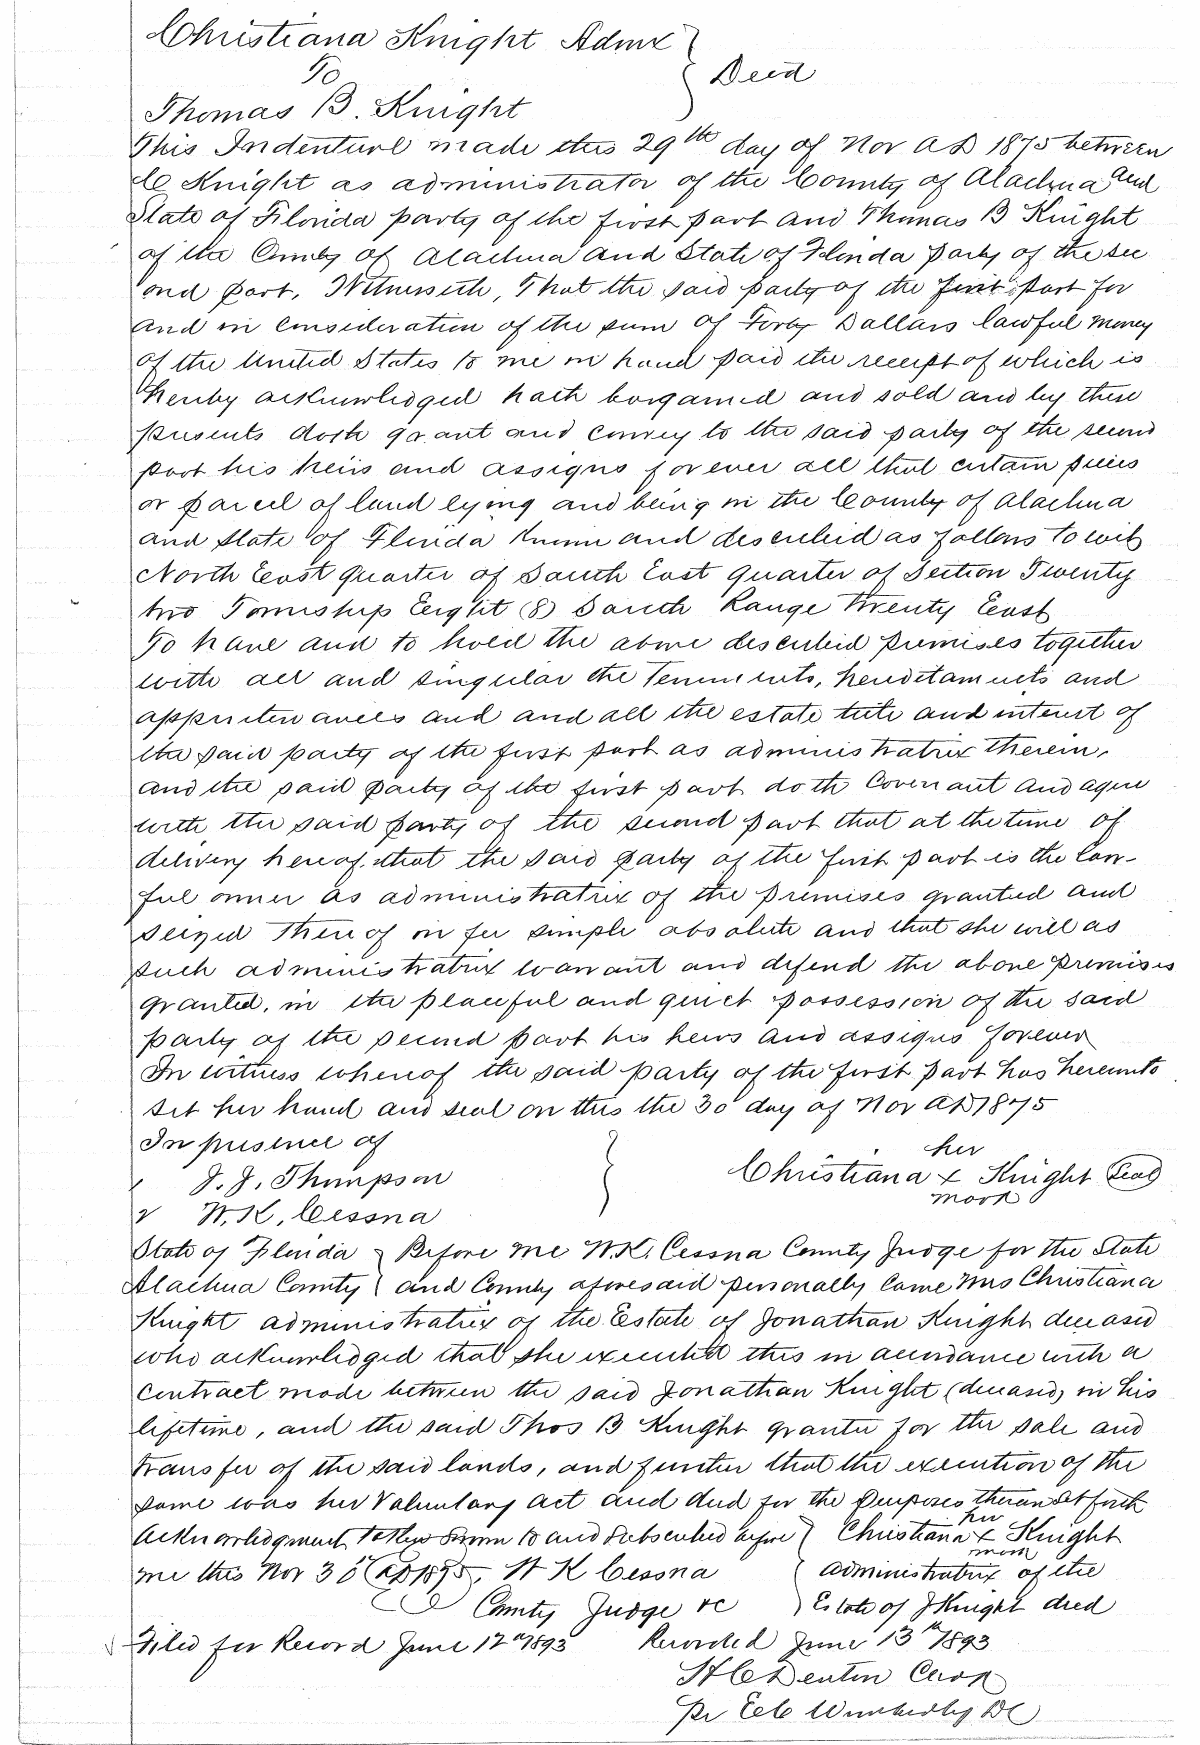 Christiana Knight Admx
To
Deed
Thomas B. Knight
This Indenture made this 29th day of Nov AD 1875 between
C Knight as administrator of the County of Alachua and
State of Florida party of the first part and Thomas B Knight
of the County of Alachua and State of Florida party of the sec
ond part, Witnesseth, That the said party of the first part for
and in consideration of the sum of Forty Dollars lawful money
of the United States to me in hand paid the receipt of which is
hereby acknowledged hath bargained and sold and by these
presents doth grant and convey to the said party of the second
part his heirs and assigns forever all that certain pieces
or parcel of land lying and being in the County of Alachua
and State of Florida known and described as follows to wit
North East quarter of South East quarter of Section Twenty
two Township Eight (8) South Range Twenty East
To have and to hold the above described premises together
with all and singular the Tenements, hereditaments and
appurtenances and and all the estate title and interest of
the said party of the first part as administratrix therein.
and the said party of the first part doth covenant and agree
with the said party of the second part that at the time of
delivery hereof that the said party of the first part is the law-
ful owner as administratrix of the premises granted and
seized there of in fee simple absolute and that she will as
such administratrix warrant and defend the above premises
granted, in the peaceful and quiet possession of the said
party of the second part his heirs and assigns forever
In witness whereof the said party of the first part has hereunto
set her hand and seal on this the 30 day of Nov AD 1875
In presence of
her
J. J. Thompson
Christiana x Knight Seal
mark
W. K. Cessna
State of Florida Before me W.K. Cessna County Judge for the State
Alachua County and County aforesaid personally came Mrs Christiana
Knight administratrix of the Estate of Jonathan Knight deceased
who acknowledged that she executed this in accordance with a
contract made between the said Jonathan Knight (deceased) in his
lifetime, and the said Thos B Knight grantee for the sale and
transfer of the said lands, and further that the execution of the
same was her Voluntary act and deed for the purposes therein set forth
her
Acknowledgment taken sworn to and subscribed before Christiana x Knight
mark
me this Nov 30 AD 1875, W K Cessna administratrix of the
County Judge &c Estate of J Knight decd
Filed for Record June 12th 1893 Recorded June 13th 1893
H C Denton Clerk
Pr DC